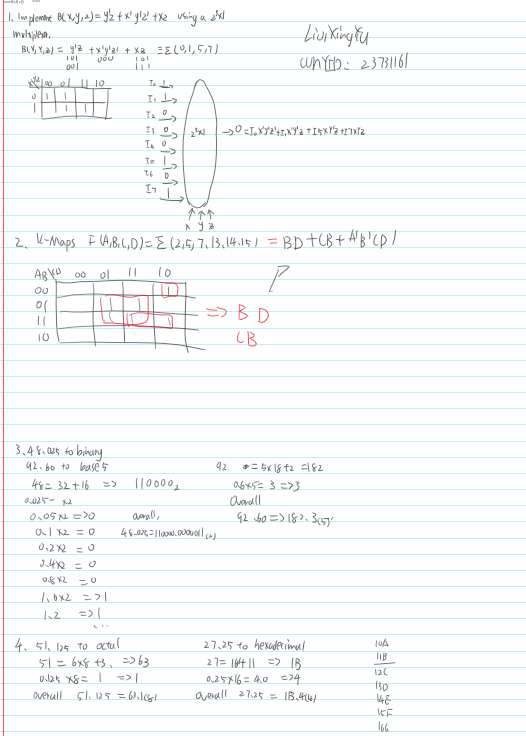 1. Implement B(x,y,z) = y'z + x'y'z' + xz using a 2³x1
multiplexer.
Liu, XingYu
CUNYID: 23731161
B(x,y,z) = y'z + x'y'z' + xz = Σ(0,1,5,7)
101 000 101
001 111
x yz 00 01 11 10
0 1 1
1 1 1
I₀ 1
I₁ 1
I₂ 0
I₃ 0
I₄ 0
I₅ 1
I₆ 0
I₇ 1
2³x1
→ O = I₀x'y'z' + I₁x'y'z + I₅xy'z + I₇xyz
x y z
2. K-Maps F(A,B,C,D) = Σ(2,5,7,13,14,15) = BD + CB + A'B'CD'
AB CD 00 01 11 10
00 1
01 1 1
11 1 1 1
10
=> BD
CB
3. 48.025 to binary
92.60 to base 5
48 = 32 + 16 => 110000₂
0.025 - x2
0.05x2 => 0
0.1x2 = 0
0.2x2 = 0
0.4x2 = 0
0.8x2 = 0
1.6x2 => 1
1.2 => 1
...
overall,
48.025 = 110000.000001(2)
92 = 5x18+2 = 182
0.6x5 = 3 => 3
Overall
92.60 => 182.3(5).
4. 51.125 to octal
51 = 6x8+3. => 63
0.125x8 = 1 => 1
overall 51.125 = 63.1(8)
27.25 to hexadecimal
27 = 16+11 => 1B
0.25x16 = 4.0 => 4
overall 27.25 = 1B.4(16)
10A
11B
12C
13D
14E
15F
16G